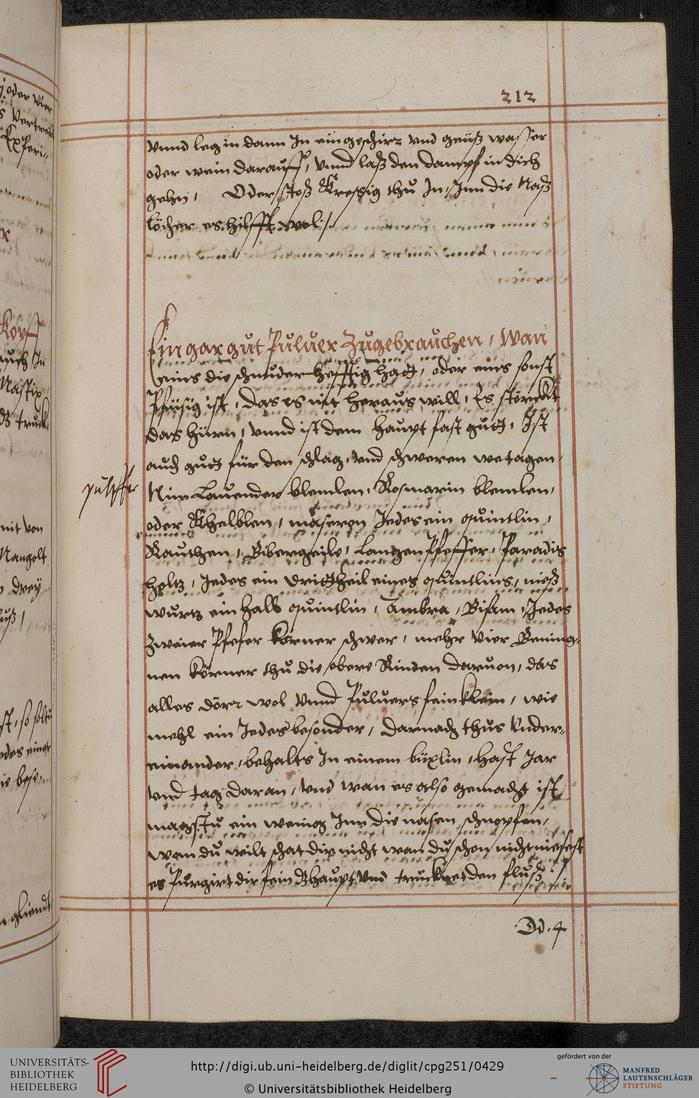 212
Vnnd leg in dann In ein geschirr vnd geüß wasser
oder wein darauff, vnnd laß den dampf in dich
gehn, Oder stoß Kressig thu In, Inn die Naß
löcher es hilfft wol.
Ein gar gut Puluer Zugebrauchen, wan
eins die schnuder hefftig hatt, oder eins sonst
Pfüsig ist, das es nit heraus will, Es störckt
das hürn, vnnd ist dem haupt fast gutt, Ist
auch gutt für den schlag, vnd schweren wetagen,
pulffer
Nim Lauender blemlen, Rosmarin blemlen,
oder Khelblen, maseron Jedes ein quintlin,
Rauthen, Bibergeile, Langen Pfeffer, Paradis
holtz, Jedes ein drittheil eines quintlins, nieß
wurtz ein halb quintlin, Ambra, Bisam, Jedes
Zweier Pfefer Körner schwer, mehr Vier Bening-
nen Körner thu die obere Rinden daruon, das
alles dörr wol vnnd Puluers fein klein, wie
mehl ein Jedes besonder, darnach thus Vnder-
einander, behalts In einem büxlin, hast Jar
vnd tag daran, vnd wan es also gemacht ist
magstu ein weinig Inn die nasen schnopfen,
wan du wilt schat dir nicht wan du schon nicht niesest
es Purgirt dir sein Bhaupt vnd trucknet den fluß
Dd. 4
UNIVERSITÄTS-
BIBLIOTHEK
HEIDELBERG
http://digi.ub.uni-heidelberg.de/diglit/cpg251/0429
© Universitätsbibliothek Heidelberg
gefördert von der
MANFRED
LAUTENSCHLÄGER
STIFTUNG